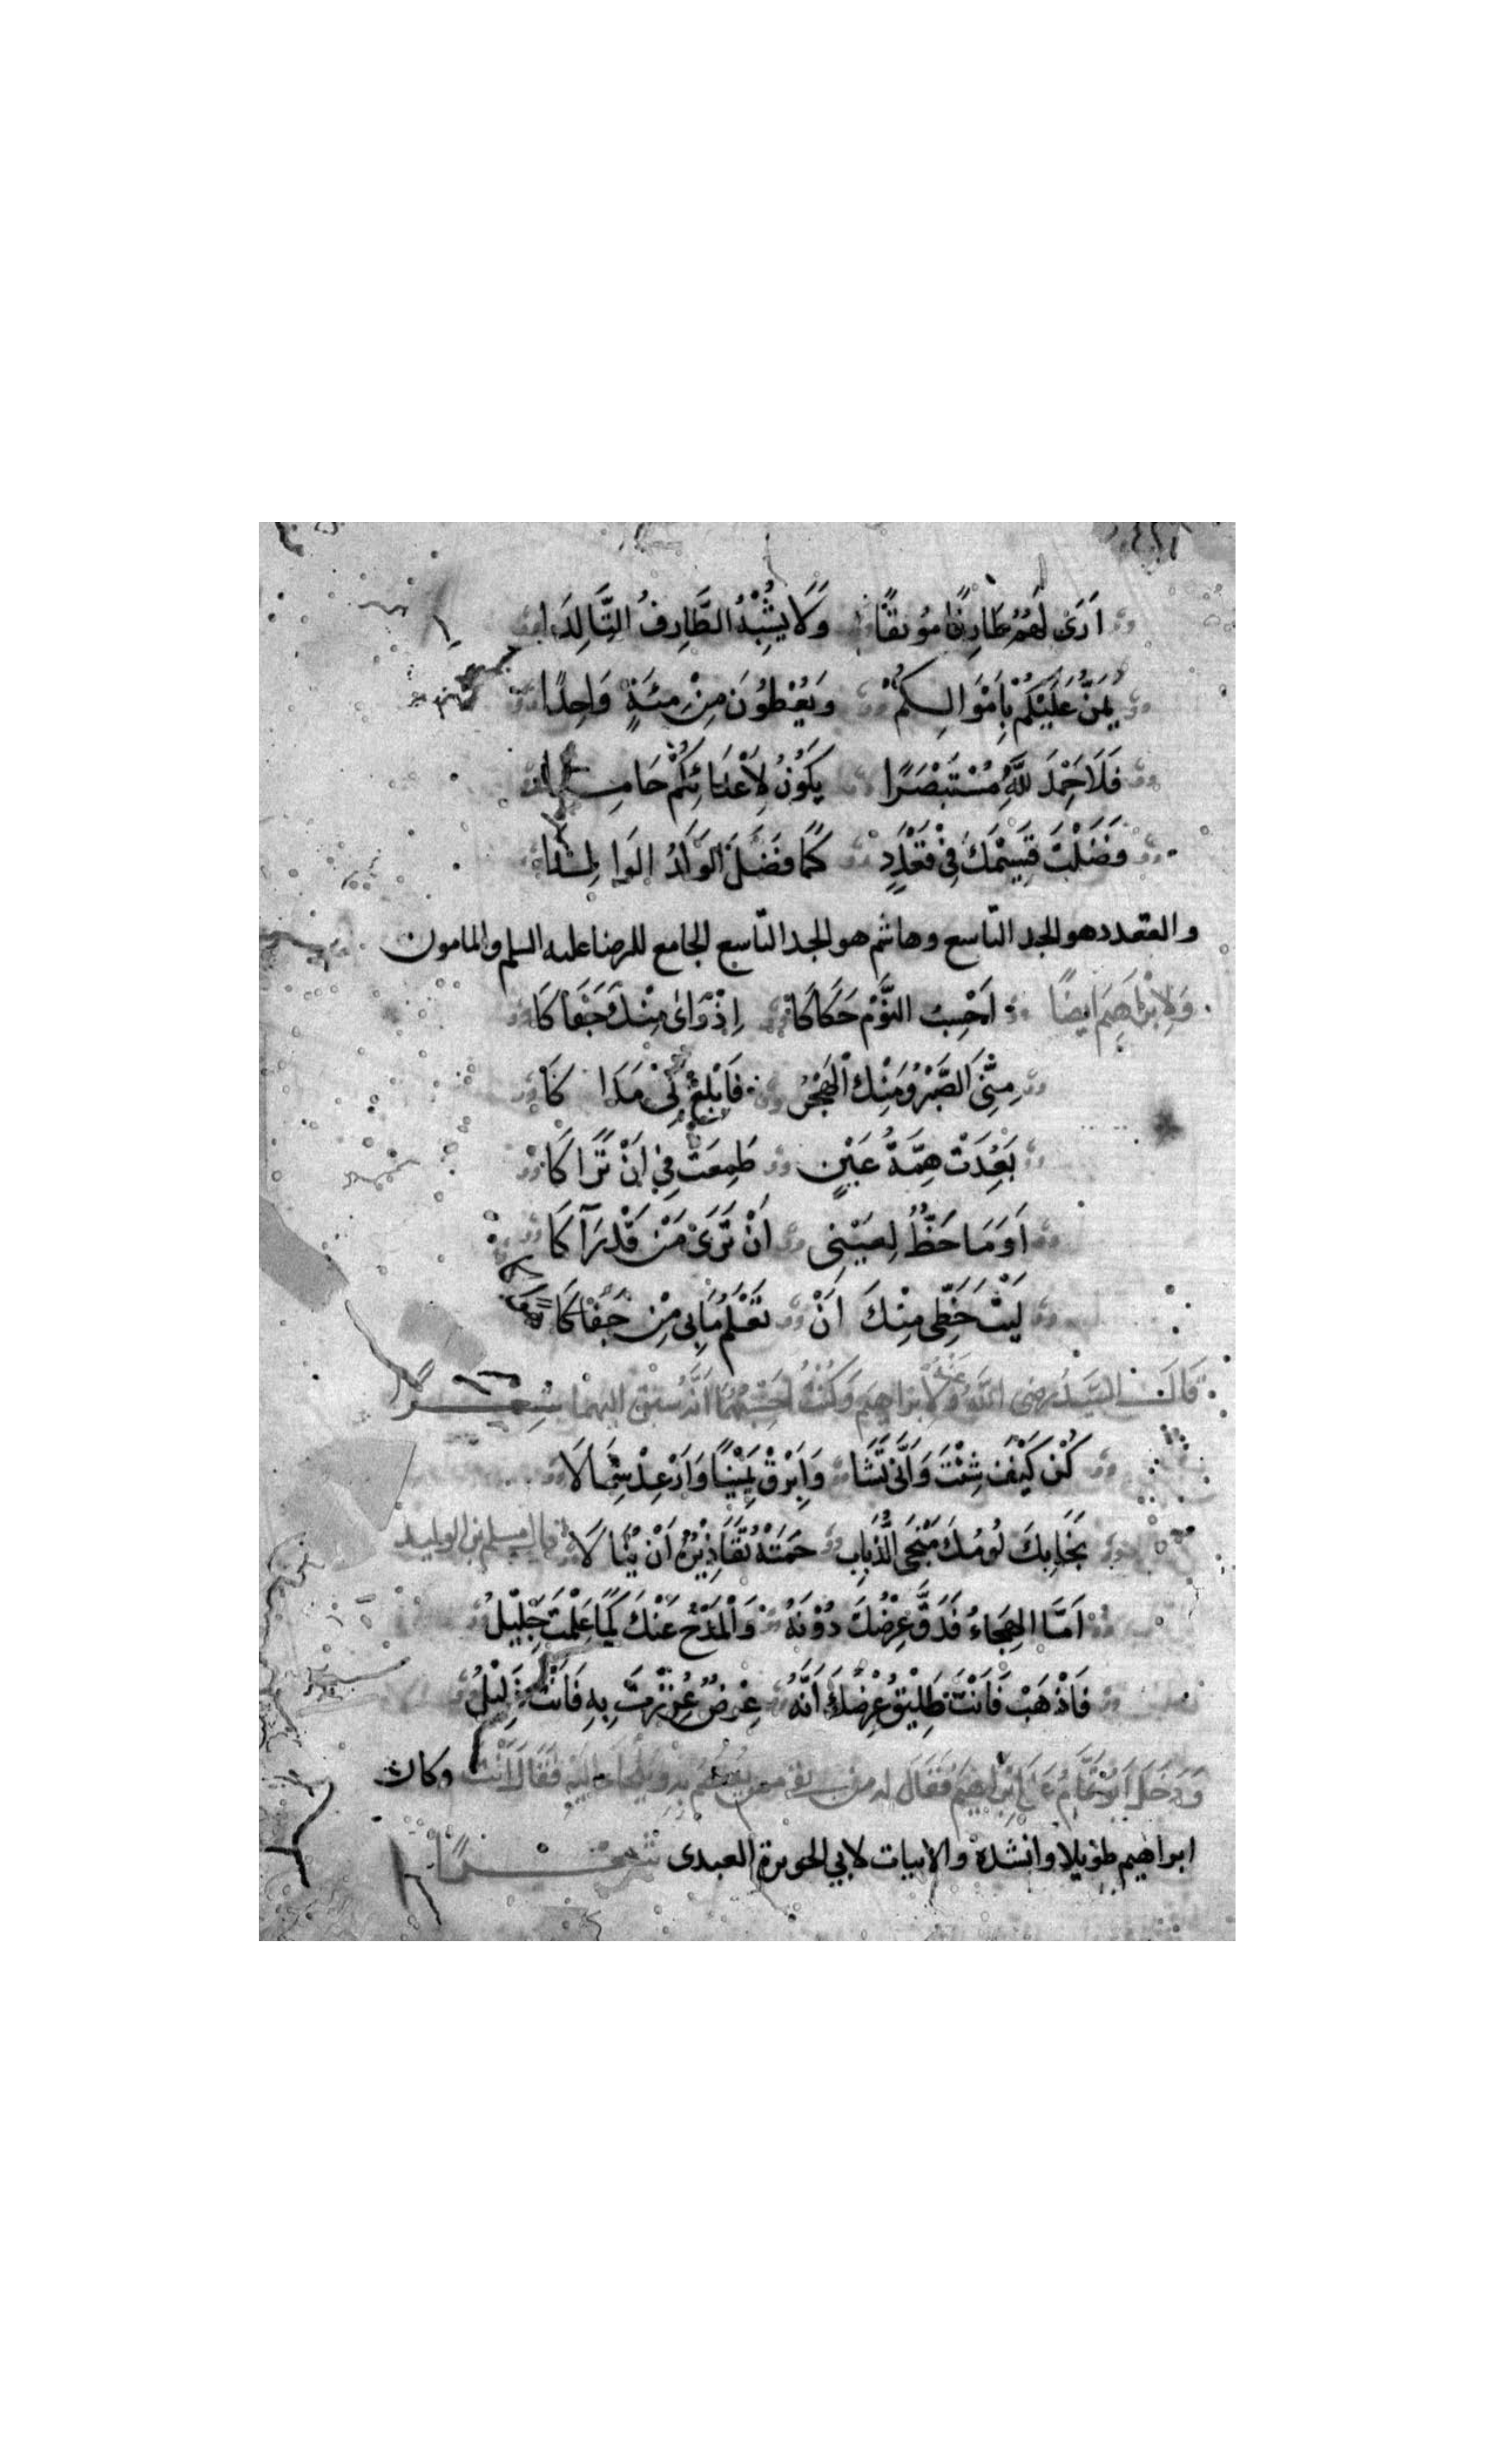 اَرَىٰ لَهُمْ طَارِفًا مُونِقًا وَلَا يُشْبِهُ الطَّارِفُ التَّالِدَا
يَمُنُّ عَلَيْكُمْ بِاَمْوَالِكُمْ وَيُعْطُونَ مِنْ مِئَةٍ وَاحِدًا
فَلَا حَمِدَ لِلّٰهِ مُسْتَبْصَرًا يَكُوْنُ لِاَعْدَائِكُمْ حَامِدًا
فَضُلْتَ قَسِيْمَكَ فِيْ قُعْدُدٍ كَمَا فَضَلَ الْوَلَدُ الوَالِدَا
والقعدد هو الجد التاسع وهاشم هو الجد التاسع الجامع للرضا عليه السلم والمامون
وَلِاِبْرَاهِيْمَ اَيْضًا اَحْسِبُ النَّوْمَ حَكَاكَا اِذْ رَاٰى مِنْكَ جَفَاكَا
مِنِّيَ الصَّبْرُ وَمِنْكَ الْهَجْرُ فَابْلِغْ بِيْ مَدَاكَا
بَعُدَتْ هِمَّةُ عَيْنٍ طَمِعَتْ فِيْ اَنْ تَرَاكَا
اَوَ مَا حَظٌّ لِعَيْنِى اَنْ تَرَىٰ مَنْ قَدْ رَآكَا
لَيْتَ حَظِّى مِنْكَ اَنْ تَعْلَمَ مَا بِى مِنْ جَفَاكَا
قَالَ السَّيِّدُ رضى اللّٰه عَنْهُ وَلِابراهيم وَكُنْتُ اَحْسِبُهُمَا اَنَّهُ سبق اليهما شعر
كُنْ كَيْفَ شِئْتَ وَاَنّٰى تَشَا وَاَبْرِقْ يَمِيْنًا وَاَرْعِدْ شِمَالَا
نَجَا بِكَ لُومُكَ مَنْجَى الذُّبَابِ حَمَتْهُ مَقَاذِيْرُهُ اَنْ يُنَالَا قال مسلم بن الوليد
اَمَّا الهِجَاءُ فَدَقَّ عِرْضُكَ دُوْنَهُ وَالْمَدْحُ عَنْكَ كَمَا عَلِمْتَ جَلِيْلُ
فَاذْهَبْ فَاَنْتَ طَلِيْقُ عِرْضِكَ اَنَّهُ عِرْضٌ عَزَزْتَ بِهِ فَاَنْتَ ذَلِيْلُ
وَدَخَلَ اَبُوتَمَّام عَلَى اِبْرَاهِيْمَ فَقَالَ له فَقَالَ اَنْتَ وكان
ابراهيم طويلا وانشده والابيات لابي الحويرة العبدى